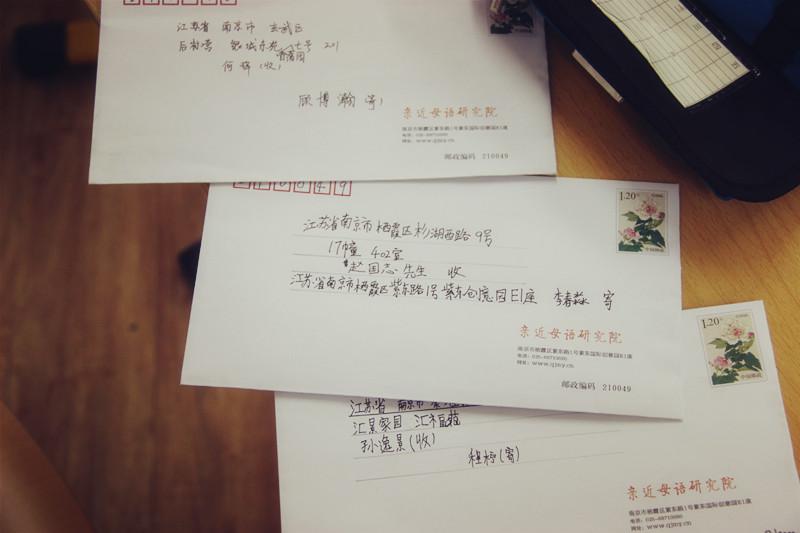 江苏省 南京市 玄武区
后宰营 七号 201
何 (收)
顾博瀚 寄
亲近母语研究院
南京市栖霞区紫东路1号紫东国际创意园E1座
电话: 025-68710090
网址: www.qjmy.cn
邮政编码 210049
210049
1.20
中国邮政
江苏省南京市栖霞区杉湖西路9号
17幢 402室
赵国志先生 收
江苏省南京市栖霞区紫东路1号紫东创意园E1座 李春淼 寄
亲近母语研究院
南京市栖霞区紫东路1号紫东国际创意园E1座
电话: 025-68710090
网址: www.qjmy.cn
邮政编码 210049
1.20
中国邮政
江苏省 南京市
汇景家园 汇福苑
孙逸景(收)
(寄)
亲近母语研究院
南京市栖霞区紫东路1号紫东国际创意园E1座
电话: 025-68710090
网址: www.qjmy.cn